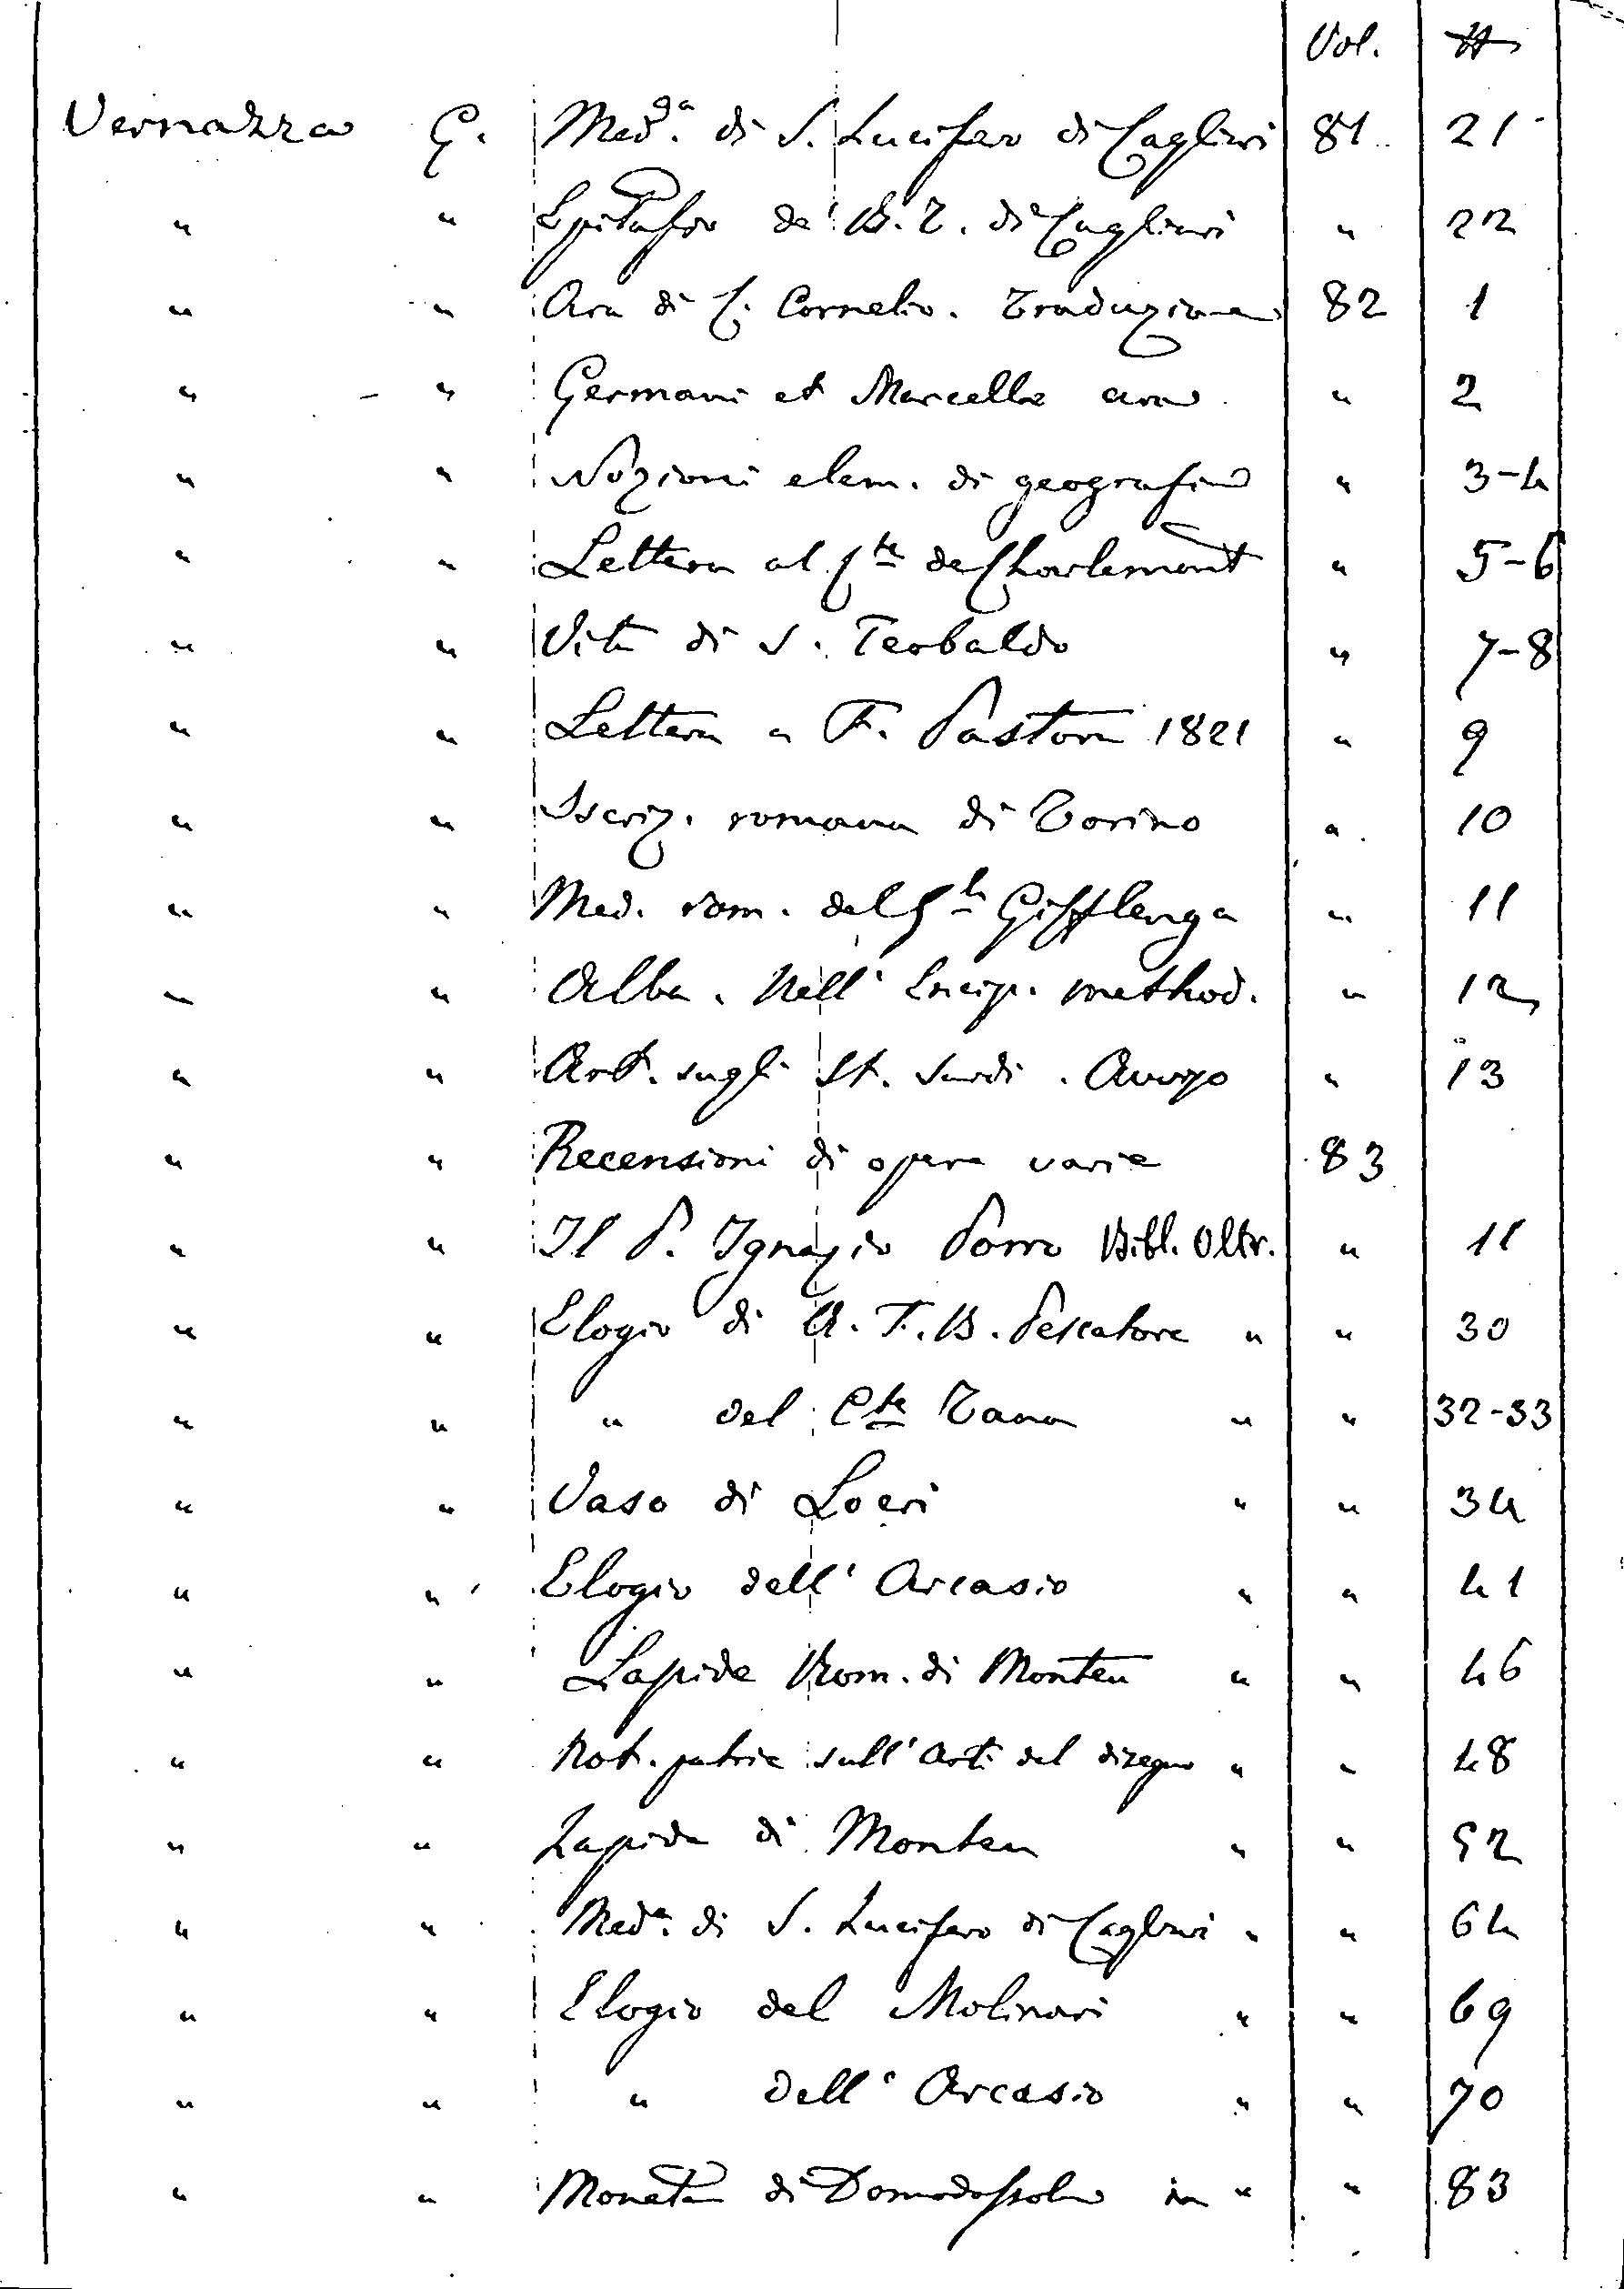 Vol. #
Vernazza G. Med.ga di S. Lucifero di Cagliari 81 21
" " Epitafio de' B. T. di Cagliari " 22
" " Ara di C. Cornelio. Traduzione 82 1
" " Germani et Marcellae ara " 2
" " Nozioni elem. di geografia " 3-4
" " Lettera al Cte de Charlemont " 5-6
" " Vita di S. Teobaldo " 7-8
" " Lettera a F. Pastore 1821 " 9
" " Iscriz. romana di Torino " 10
" " Med. rom. del Gifflenga " 11
" " Alba. Nell' Encip. method. " 12
" " Art. sugli St. Sardi. " 13
" " Recensioni di opere varie 83
" " Il P. Ignazio Porro Bibl. Oltr. " 11
" " Elogio di A. T. B. Pescatore " " 30
" " " del Cte Tana " " 32-33
" " Vaso di Locri " " 34
" " Elogio dell' Arcasio " " 41
" " Lapide Rom. di Monteu " " 46
" " Not. patrie sull' Arti del disegno " " 48
" " Lapide di Monteu " " 52
" " Meda. di S. Lucifero di Cagliari " " 64
" " Elogio del Molinari " " 69
" " " dell' Arcasio " " 70
" " Moneta di Domodossola in " " 83